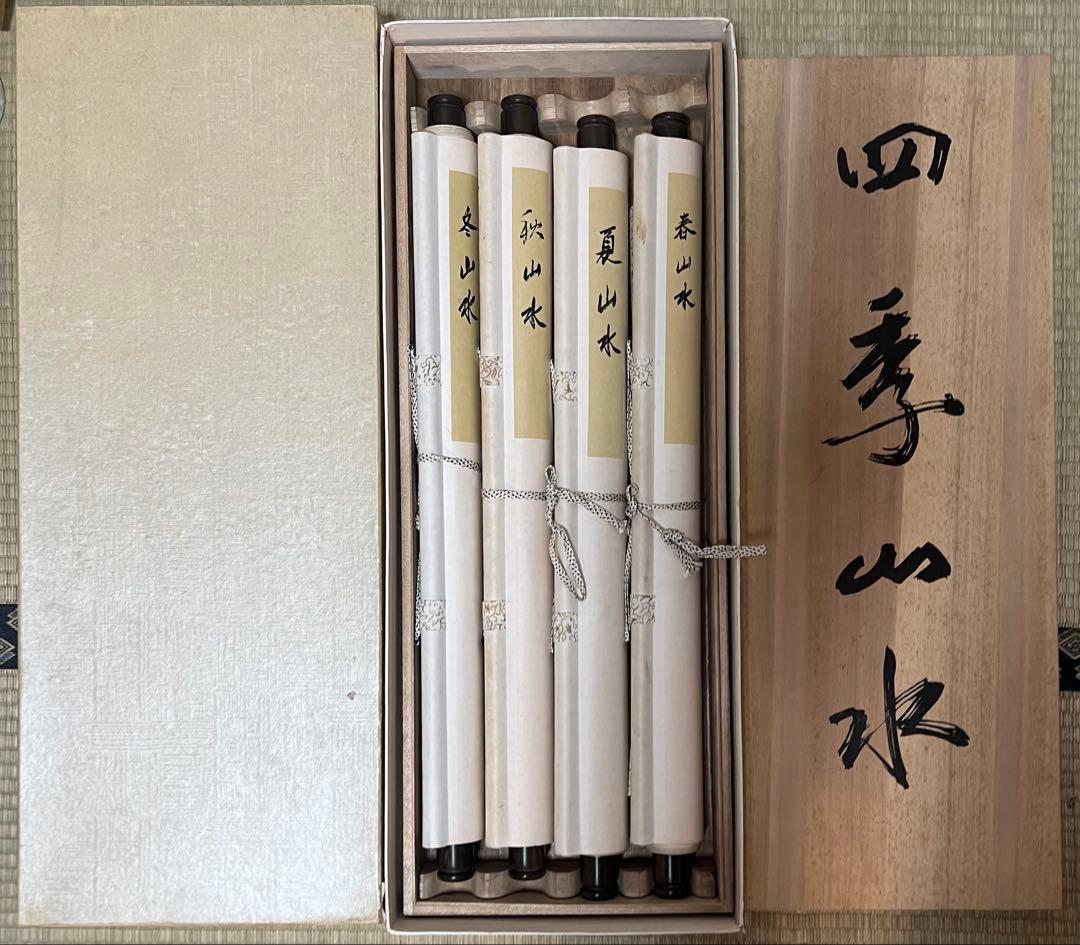 四季山水
春山水
夏山水
秋山水
冬山水